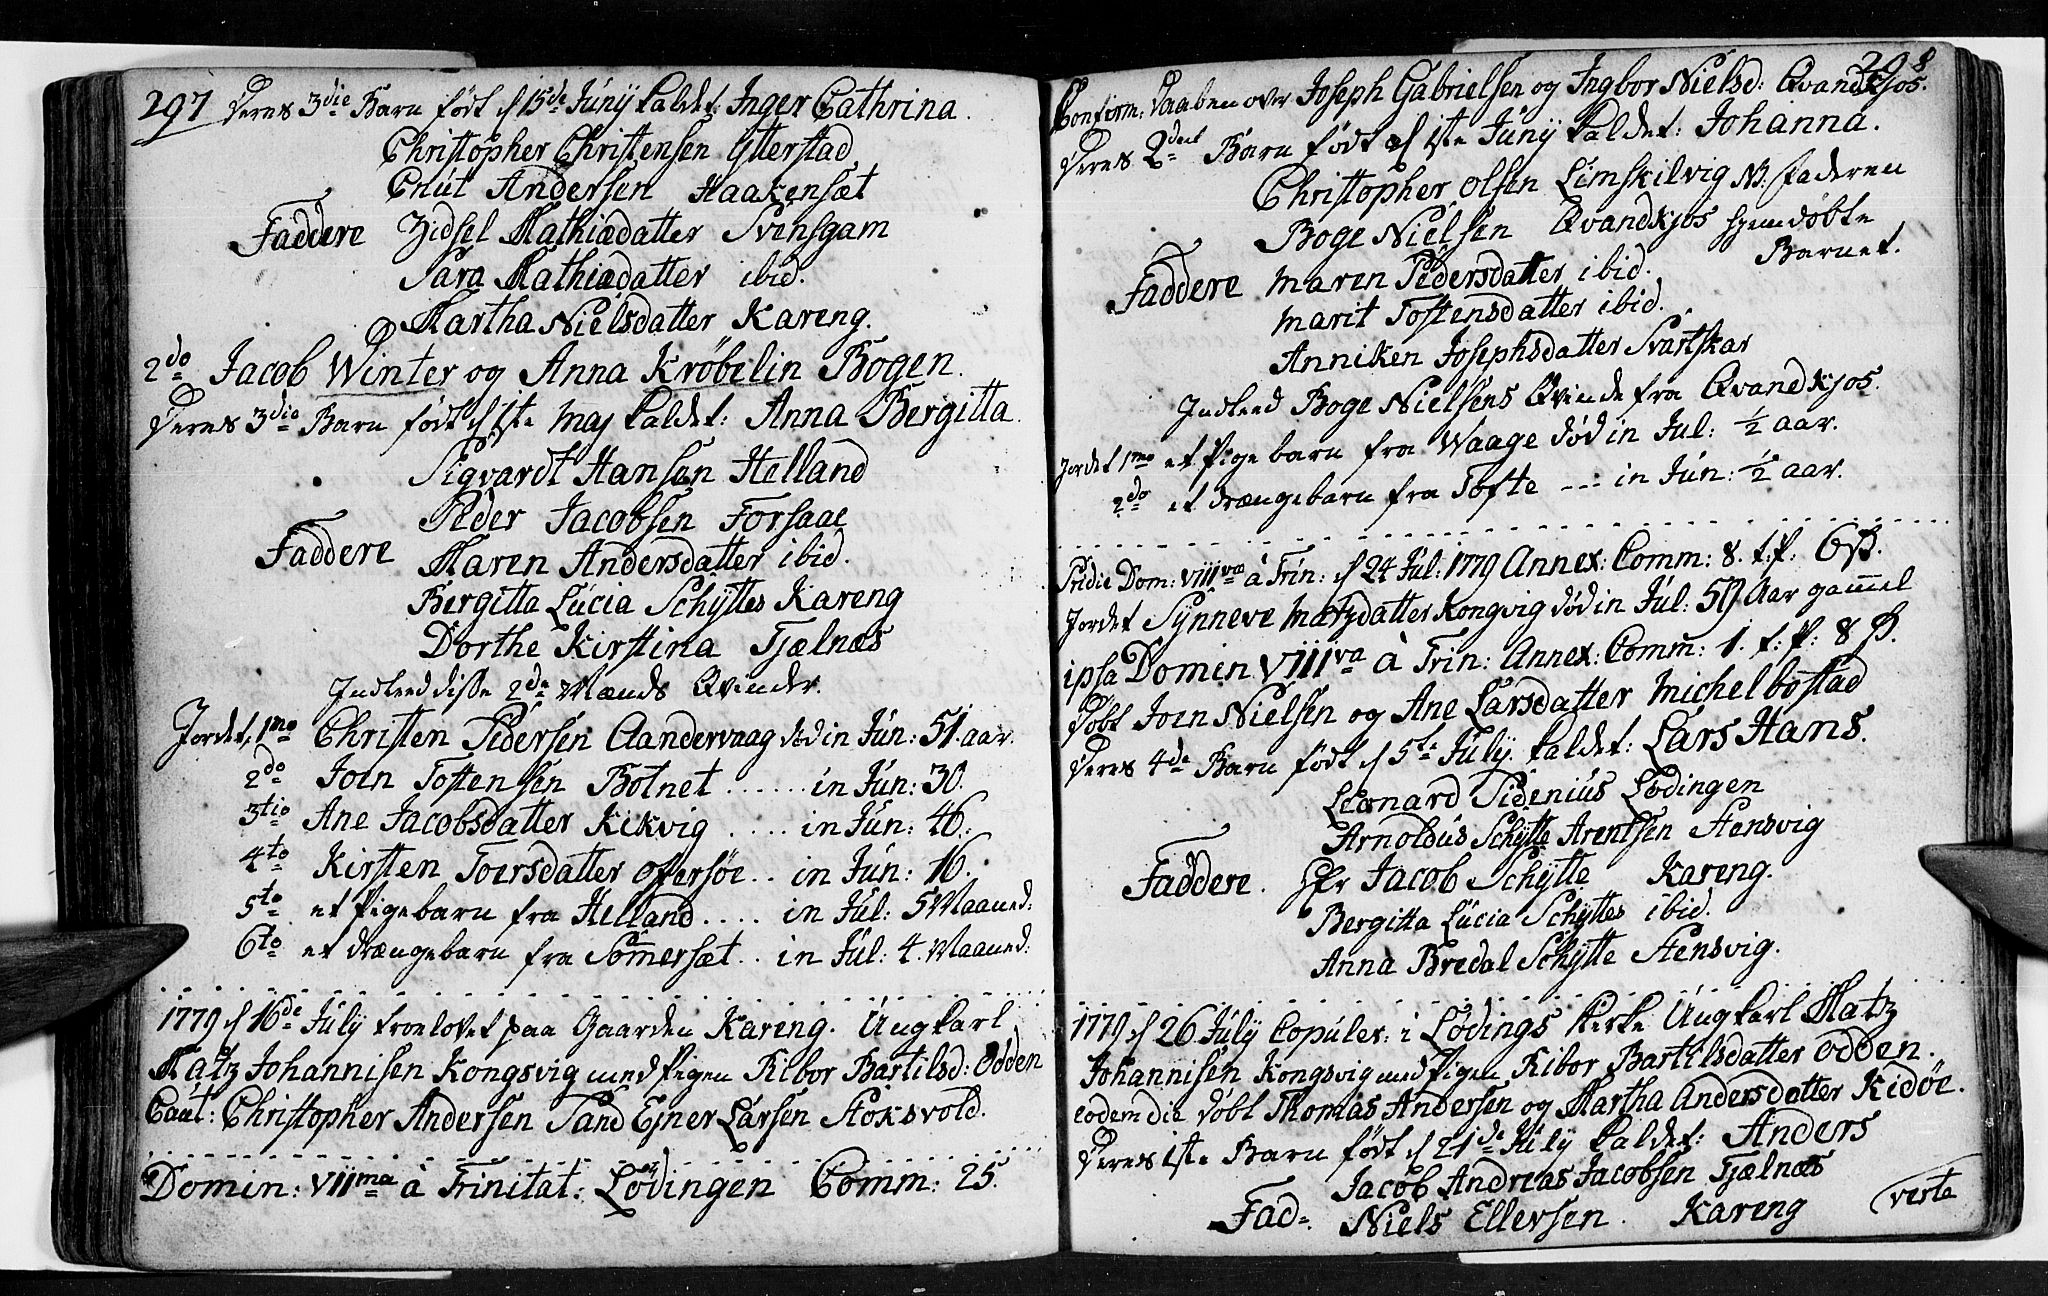 297
Deres 3die Barn født d 15de Junÿ kaldet: Inger Cathrina.
Christopher Christensen Ytterstad
Cnut Andersen Haakensæt
Faddere Zidsel Mathiædatter Svensgam
Sara Mathiædatter ibid.
Martha Nielsdatter Kareng.
2do Jacob Winter og Anna Krøbelin Bogen.
Deres 3die Barn født d 1ste Maj kaldet: Anna Bergitta.
Sigvardt Hansen Helland
Peder Jacobsen Forsaae
Faddere Maren Andersdatter ibid.
Bergitta Lucia Schÿttes Kareng
Dorthe Kirstina Tjælnæs
Indleed disse 2de Mænds Qvinder.
Jordet, 1mo Christen Pedersen Aandervaag død in Jun: 51. aar.
2do Joen Tostensen Botnet ...... in Jun: 30.
3tio Ane Jacobsdatter Kikvig .... in Jun: 46.
4to Kirsten Toersdatter Offersøe .. in Jun: 16.
5to et Pigebarn fra Helland .... in Jul: 5 Maaned:
6to et Drængebarn fra Somersæt .. in Jul: 4. Maaned:
1779 d 16de July troelovet paa Gaarden Kareng. Ungkarl
Matz Johannisen Kongsvig med Pigen Ribor Bartilsd: Odden
Caut: Christopher Andersen Sand Ejner Larsen Stoksvold.
Domin: VIIma à Trinitat: Lødingen Comm: 25.
298
Conform: Daaben over Joseph Gabrielsen og Ingbor Nielsd: Qvandkjos.
Deres 2det Barn født d 1ste Junÿ kaldet: Johanna.
Christopher Olsen Limskilvig N: Faderen
Boge Nielsen Qvandkjos hjemdøbte
Barnet.
Faddere Maren Pedersdatter ibid.
Marit Tostensdatter ibid.
Anniken Josephsdatter Svartskar
Indleed Boge Nielsens Qvinde fra Qvandkjos.
Jordet 1mo et Pigebarn fra Waage død in Jul: 1/2 aar.
2do et Drængebarn fra Tofte --- in Jun: 1/2 aar.
Pridie Dom: VIIIva à Trin: d 24 Jul: 1779 Annex: Comm: 8. t: P:
Jordet Synneve Matzdatter Kongvig død in Jul: 59 Aar gammel
ipsa Domin VIIIva à Trin: Annex: Comm: 1. t: P: 8
Døbt Joen Nielsen og Ane Larsdatter Michelbostad
Deres 4de Barn født d 5te Julÿ kaldet: Lars Hans.
Leonard Sidenius Lødingen
Arnoldus Schÿtte Arentsen Stensvig
Faddere. Hr Jacob Schÿtte Kareng.
Bergitta Lucia Schÿttes ibid.
Anna Bredal Schÿtte Stensvig.
1779 d 26 July Copuler: i Lødings Kirke Ungkarl Matz
Johannisen Kongsvig med Pigen Ribor Bartilsdatter Odden.
eodem die døbt Thomas Andersen og Martha Andersdatter Kidøe.
Deres 1ste Barn født d 21de July kaldet: Anders
Jacob Andreas Jacobsen Tjælnæs
Fad: Niels Ellersen. Kareng
verte